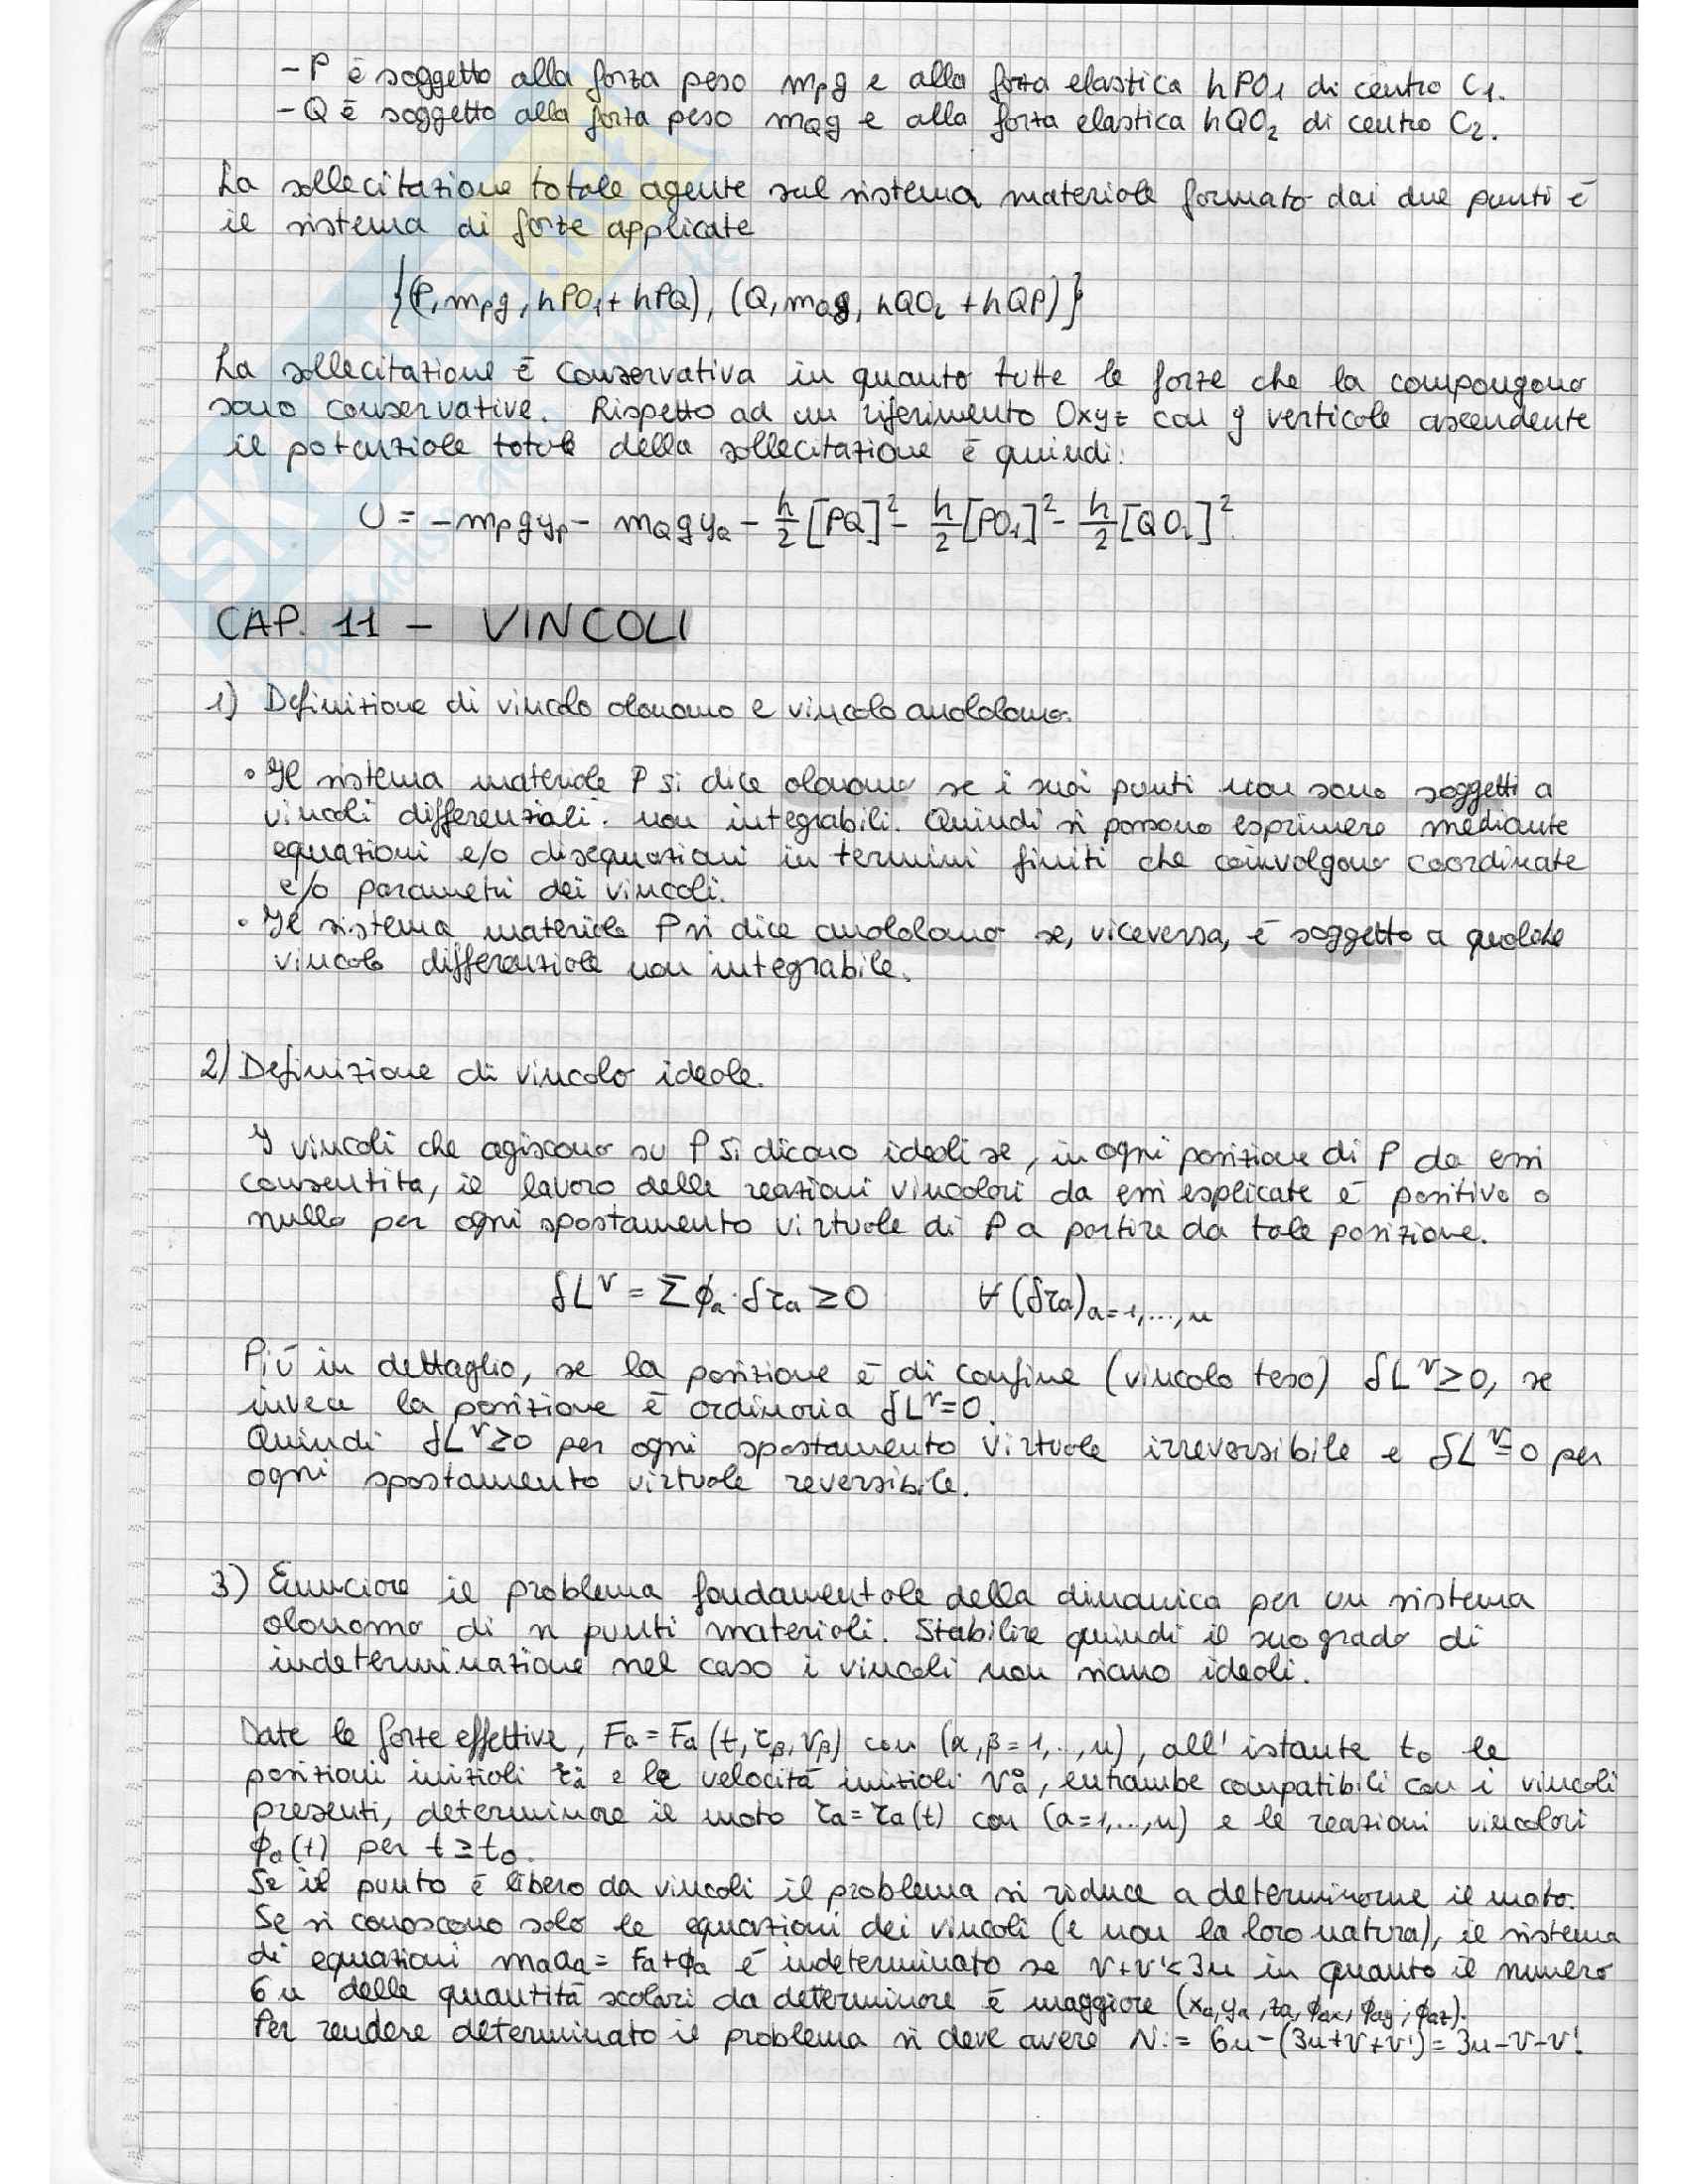 - P è soggetto alla forza peso mPg e alla forza elastica hPO1 di centro C1.
- Q è soggetto alla forza peso mQg e alla forza elastica hQO2 di centro C2.
La sollecitazione totale agente sul sistema materiale formato dai due punti è
il sistema di forze applicate
{(P, mPg, hPO1 + hPQ), (Q, mQg, hQO2 + hQP)}
La sollecitazione è conservativa in quanto tutte le forze che la compongono
sono conservative. Rispetto ad un riferimento Oxyz con y verticale ascendente
il potenziale totale della sollecitazione è quindi:
U = -mP g yP - mQ g yQ - h/2 [PQ]² - h/2 [PO1]² - h/2 [QO2]²
CAP. 11 - VINCOLI
1) Definizione di vincolo olonomo e vincolo anolonomo.
• Il sistema materiale P si dice olonomo se i suoi punti non sono soggetti a
vincoli differenziali non integrabili. Quindi si possono esprimere mediante
equazioni e/o disequazioni in termini finiti che coinvolgono coordinate
e/o parametri dei vincoli.
• Il sistema materiale P si dice anolonomo se, viceversa, è soggetto a qualche
vincolo differenziale non integrabile.
2) Definizione di vincolo ideale.
I vincoli che agiscono su P si dicono ideali se, in ogni posizione di P da essi
consentita, il lavoro delle reazioni vincolari da essi esplicate è positivo o
nullo per ogni spostamento virtuale di P a partire da tale posizione.
δLᵛ = Σ ϕa · δra ≥ 0 ∀ (δra)a=1,...,n
Più in dettaglio, se la posizione è di confine (vincolo teso) δLᵛ ≥ 0, se
invece la posizione è ordinaria δLᵛ = 0.
Quindi δLᵛ ≥ 0 per ogni spostamento virtuale irreversibile e δLᵛ = 0 per
ogni spostamento virtuale reversibile.
3) Enunciare il problema fondamentale della dinamica per un sistema
olonomo di n punti materiali. Stabilire quindi il suo grado di
indeterminazione nel caso i vincoli non siano ideali.
Date le forze effettive, Fa = Fa (t, rβ, vβ) con (α, β = 1, .., n), all'istante t0 le
posizioni iniziali r°a e le velocità iniziali v°a, entrambe compatibili con i vincoli
presenti, determinare il moto ra = ra(t) con (a = 1, ..., n) e le reazioni vincolari
ϕa(t) per t ≥ t0.
Se il punto è libero da vincoli il problema si riduce a determinarne il moto.
Se si conoscono solo le equazioni dei vincoli (e non la loro natura), il sistema
di equazioni ma aa = Fa + ϕa è indeterminato se v + v' < 3n in quanto il numero
6n delle quantità scalari da determinare è maggiore (xa, ya, za, ϕax, ϕay, ϕaz).
Per rendere determinato il problema si deve avere N := 6n - (3n + v + v') = 3n - v - v'.